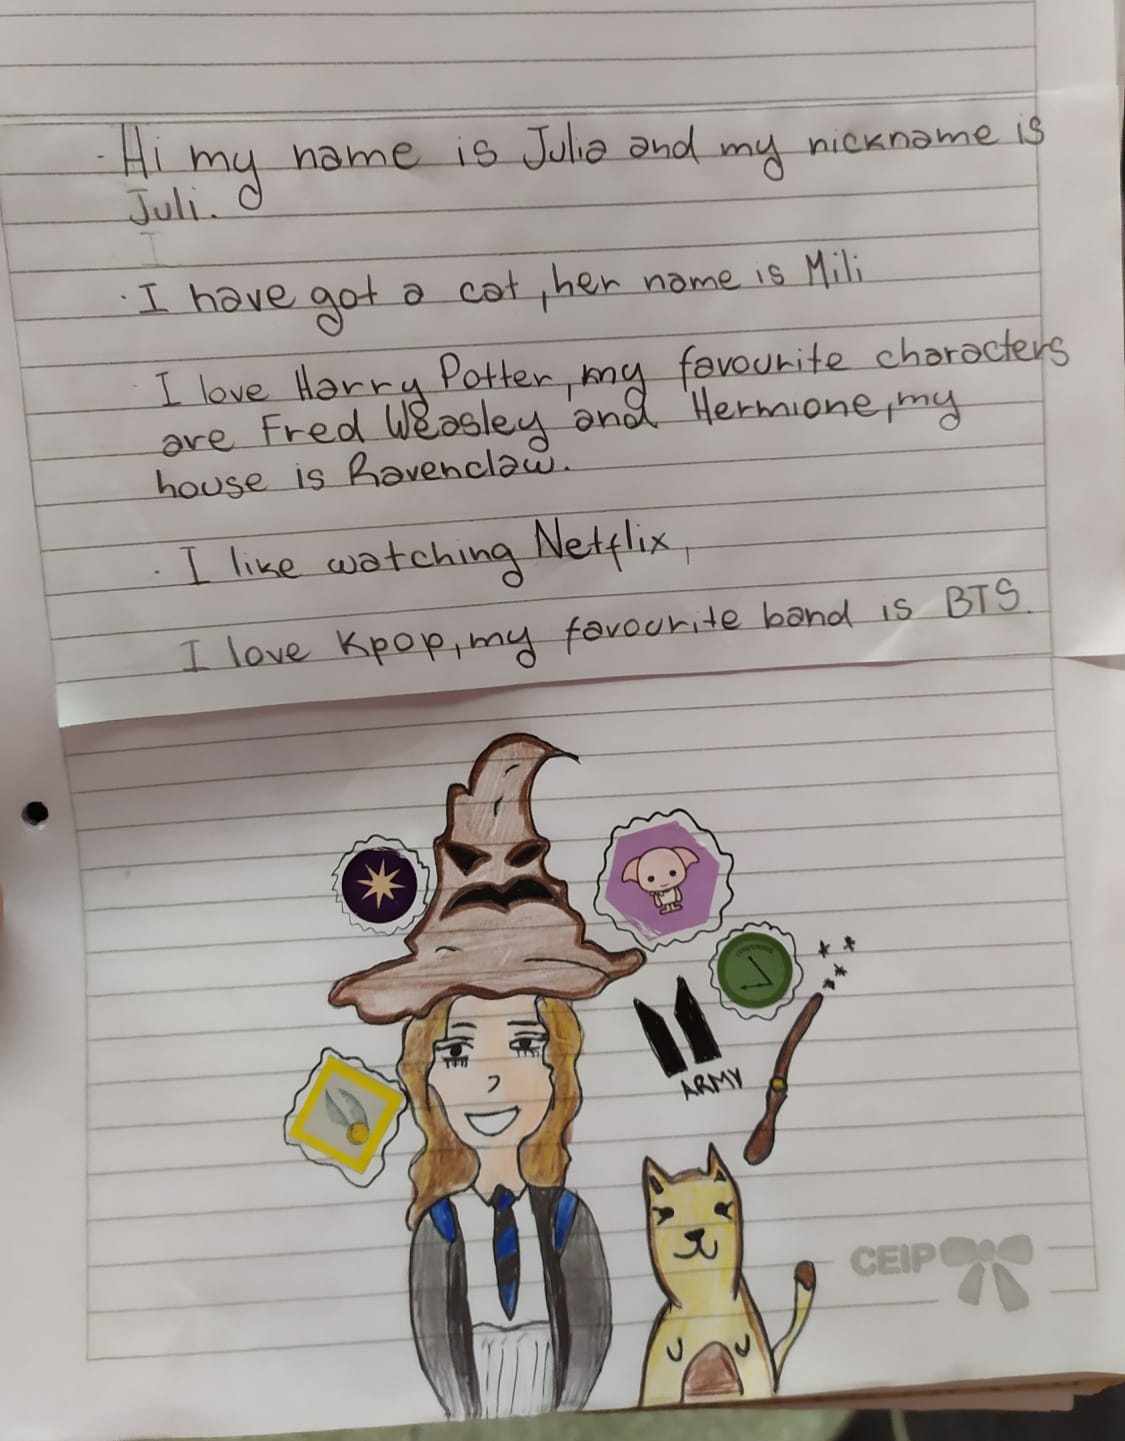 · Hi my name is Julia and my nickname is
Juli.
· I have got a cat, her name is Mili
· I love Harry Potter, my favourite characters
are Fred Weasley and Hermione, my
house is Ravenclaw.
· I like watching Netflix,
I love Kpop, my favourite band is BTS.
ARMY
CEIP